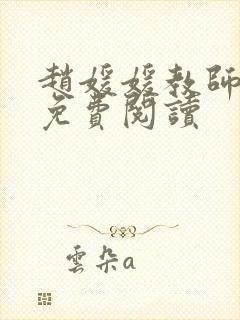 趙媛媛教師
免費閱讀
雲朵a